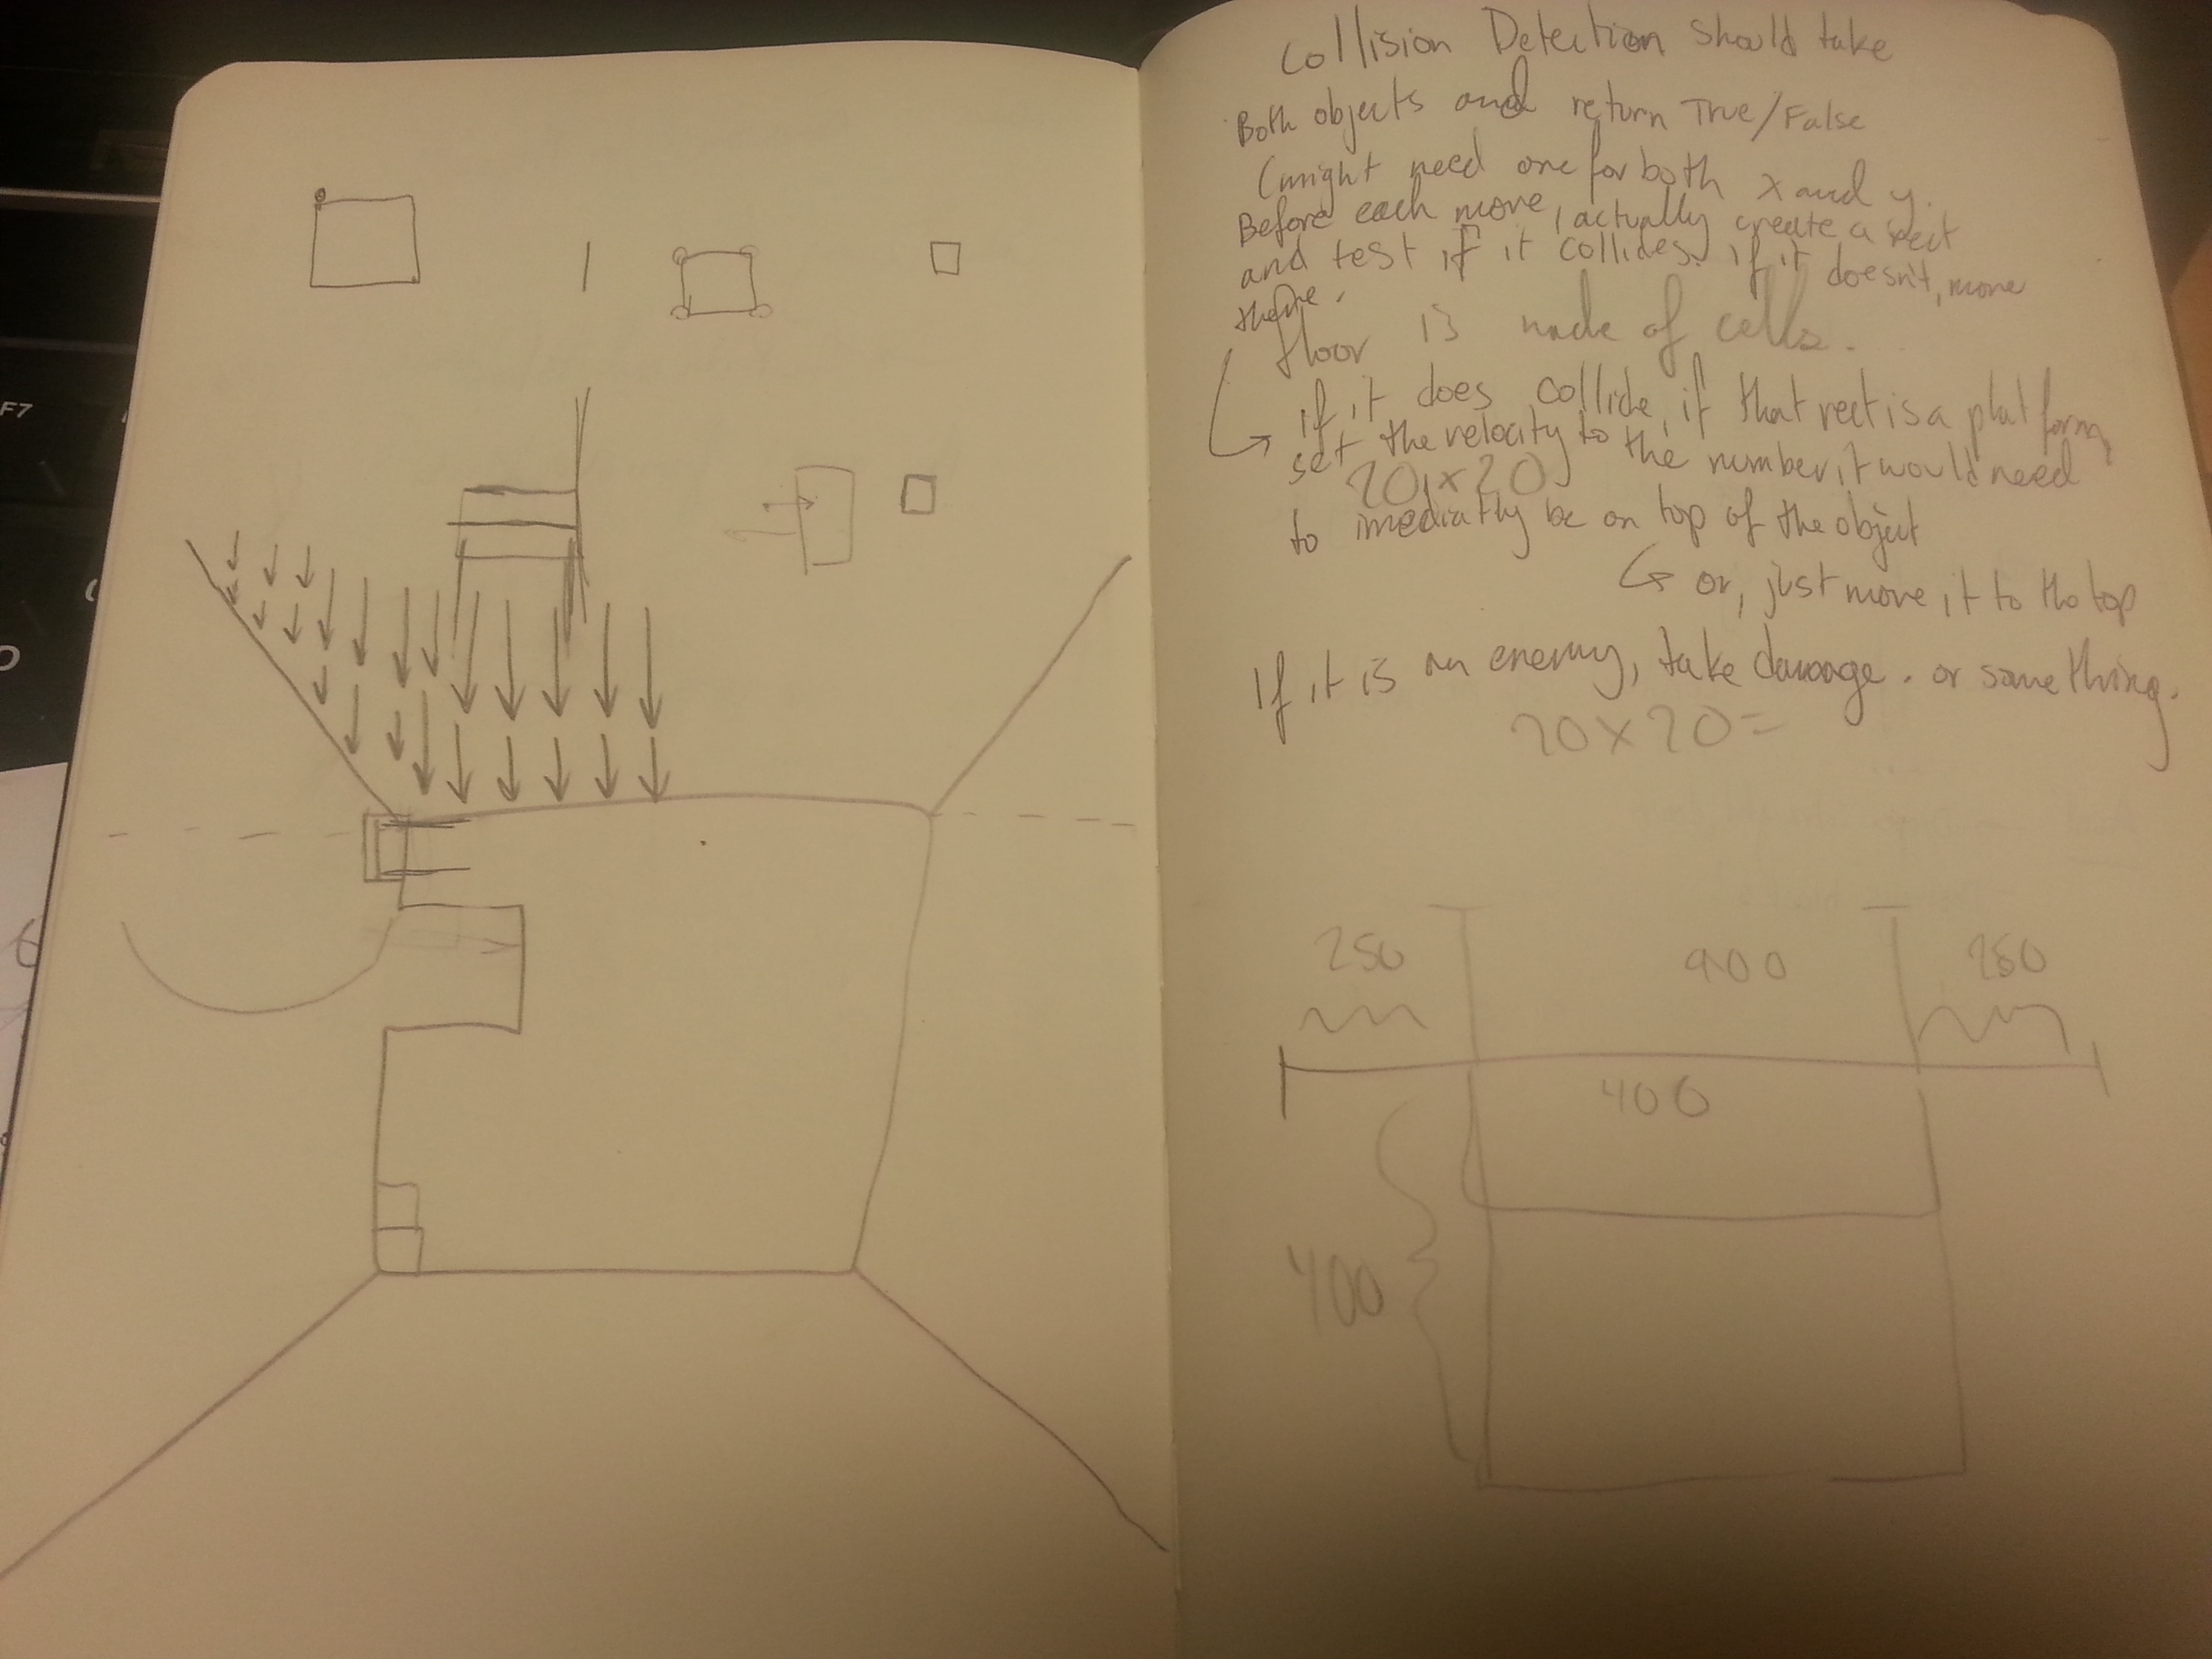 F7
Collision Detection should take
Both objects and return True/False
(might need one for both x and y.
Before each move, actually create a rect
and test if it collides. if it doesn't, move
there.
floor is made of cells.
if it does collide, if that rect is a platform,
set the velocity to the number it would need
20 x 20
to imediatly be on top of the object
or, just move it to the top
If it is an enemy, take damage. or something.
20x20=
250 900 250
400
400